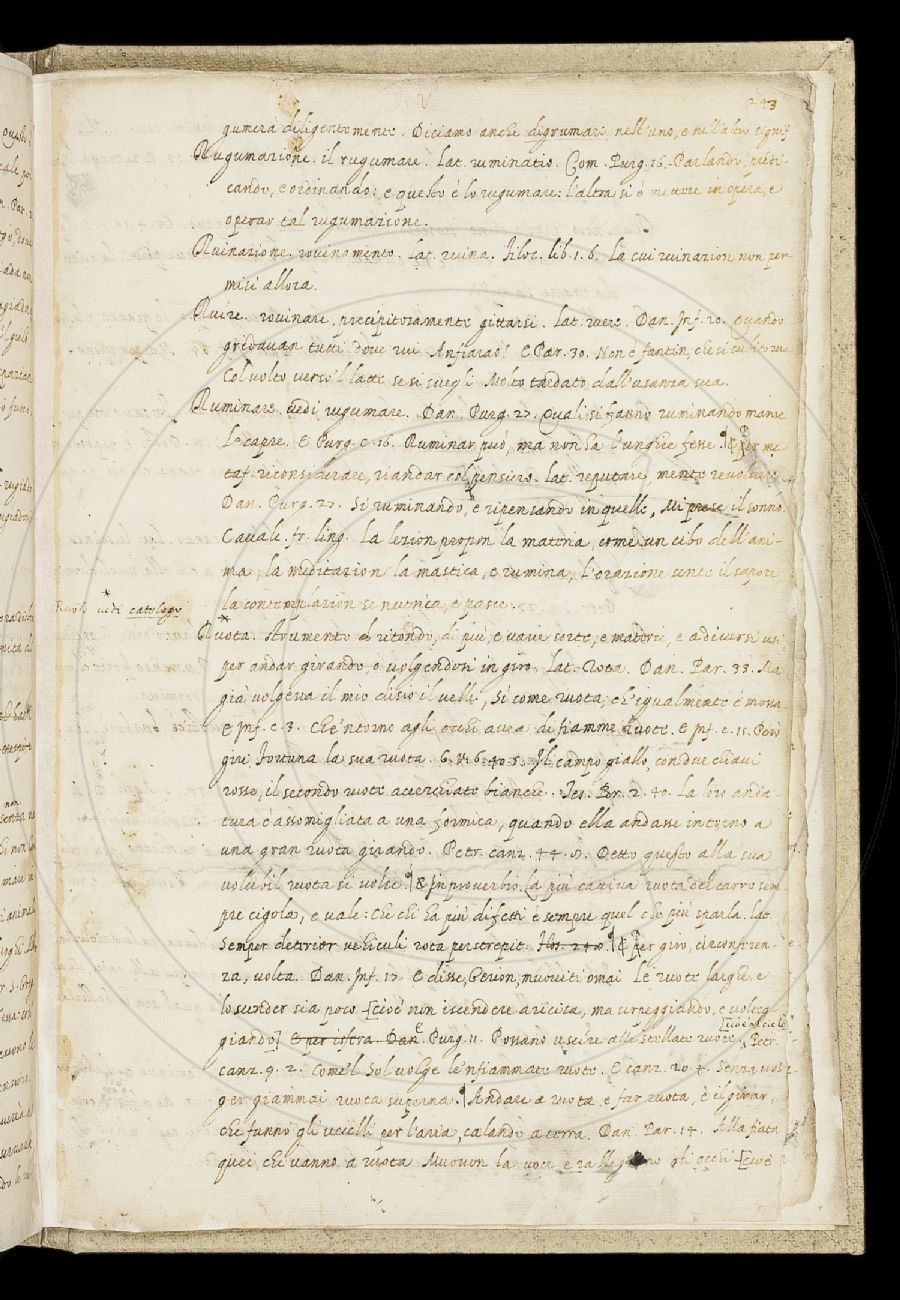 V
243
gumerà diligentemente. Diciamo anche digrumare nell'uno, e nell'altro signif.
Rugumazione. il rugumare. Lat. ruminatio. Com. Purg. 16. Parlando, predi-
cando, e ordinando: e questo è lo rugumare: l'altra si è mettere in opera, e
operar tal rugumazione.
Ruinazione. rovinamento. Lat. ruina. Filoc. lib. 1. 6. La cui ruinazion non per-
misi allora.
Ruire. rovinare. precipitosamente gittarsi. Lat. ruere. Dan. Inf. 20. Quando
gridavan tutti dove rui Anfiarao! E Par. 30. Non è fantin, che si subito rua
Col volto verso 'l latte se si svegli Molto tardato dall'usanza sua.
Ruminare. vedi rugumare. Dan. Purg. 27. Quali si fanno ruminando manse
Le capre. E Purg. c. 16. Ruminar può, ma non ha l'unghie fesse. ¶ & per me-
taf. riconsiderare, riandar col pensiero. Lat. reputare, mente revolvere
Dan. Purg. 27. Si ruminando, e ripensando in quelle, Mi prese il sonno.
Cavalc. fr. ling. La lezion propon la materia, come un cibo dell'ani-
ma, la meditazion la mastica, e rumina, l'orazione sente il sapore
la contemplazion se nutrica, e pasce.
vedi catalogo
Ruota. Strumento di ritondo, di più, e varie sorte, e materie, e a diversi usi
per andar girando, o volgendosi in giro. Lat. Rota. Dan. Par. 33. Ma
già volgeva il mio disio il velle, Si come ruota, ch'igualmente è mossa
E Inf. c. 3. Che'ntorno agli occhi avea di fiamme ruote. E Inf. c. 15. Però
giri Fortuna la sua ruota. G. V. 6. 40. 5. Il campo giallo, con due chiavi
rosse, il secondo ruote accerchiate bianche. Tes. Br. 2. 40. La loro anda-
tura è assomigliata a una formica, quando ella andasse intorno a
una gran ruota girando. Petr. canz. 44. 5. Detto questo alla sua
volubil ruota si volse ¶ & In proverbio. la più cattiva ruota del carro sem-
pre cigola, e vale: che chi ha più difetti è sempre quel che più sparla. Lat.
Semper deterior vehiculi rota perstrepit. ¶ & per giro, circonferen-
za, volta. Dan. Inf. 17. E disse, Gerion, muoviti omai Le ruote larghe e
lo scender sia poco [cioè non iscendere a ricisa, ma serpeggiando, e volteg-
giando] E per isfera. Dan. E Purg. 11. Possano uscire alle stellate ruote [cioè al cielo] Petr.
canz. 9. 2. Come'l Sol volge le'nfiammate ruote. E canz. 20. 4. Senza vol-
ger giammai ruota superna. ¶ Andare a ruota e far ruota, è il girar,
che fanno gli uccelli per l'aria, calando a terra. Dan. Par. 14. Alla fiata
quei, che vanno a ruota Muovon la voce e rallegrano gli occhi [cioè